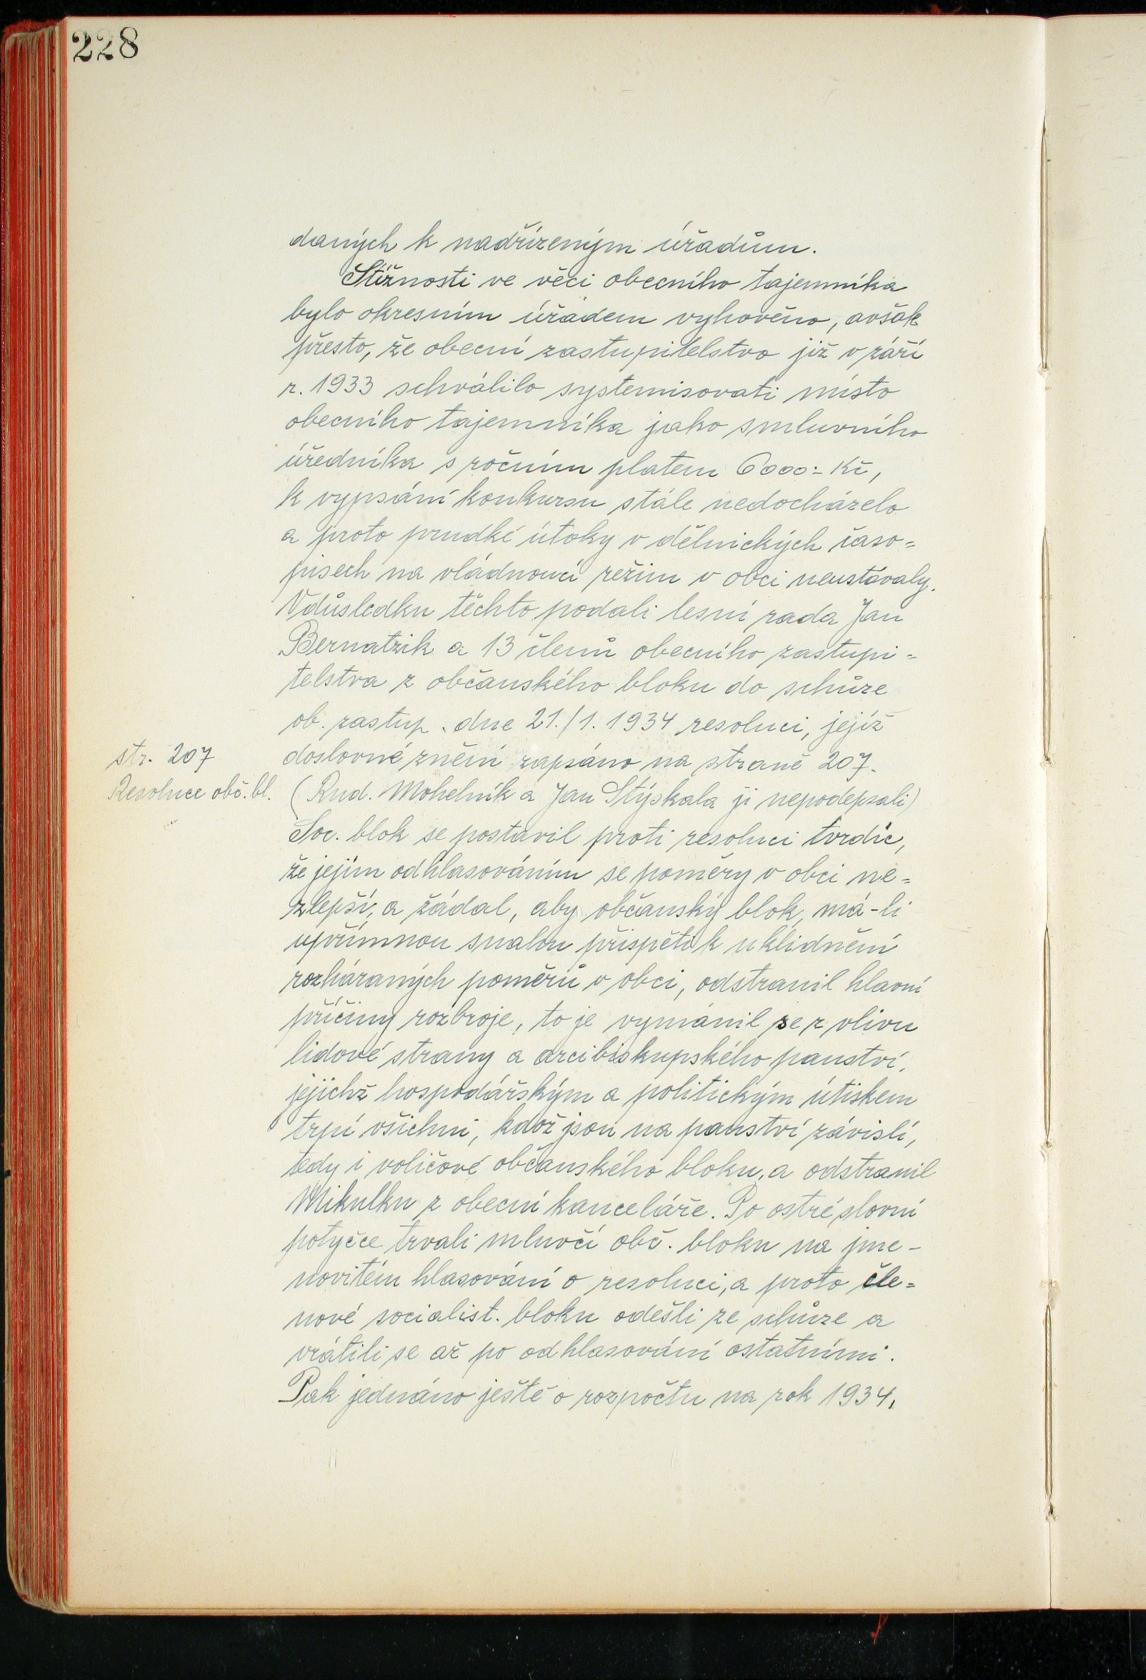 228
daných k nadřízeným úřadům.
Stížnosti ve věci obecního tajemníka
bylo okresním úřadem vyhověno, avšak
přesto, že obecní zastupitelstvo již v září
r. 1933 schválilo systemisovati místo
obecního tajemníka jako smluvního
úředníka s ročním platem 6000:- Kč,
k vypsání konkursu stále nedocházelo
a proto prudké útoky v dělnických časo=
pisech na vládnoucí režim v obci neustávaly.
Vdůsledku těchto podali lesní rada Jan
Bernatzik a 13 členů obecního zastupi=
telstva z občanského bloku do schůze
ob. zastup. dne 21./1. 1934 resoluci, jejíž
str. 207
doslovné znění zapsáno na straně 207.
Resoluce obč. bl.
(Rud. Mohelník a Jan Stýskala ji nepodepsali)
Soc. blok se postavil proti resoluci tvrdíc,
že jejím odhlasováním se poměry v obci ne=
zlepší, a žádal, aby občanský blok, má-li
upřímnou snahu přispěti k uklidnění
rozháraných poměrů v obci, odstranil hlavní
příčiny rozbroje, to je vymanil se z vlivu
lidové strany a arcibiskupského panství,
jejichž hospodářským a politickým útiskem
trpí všichni, kdož jsou na panství závislí,
tedy i voličové občanského bloku, a odstranil
Mikulku z obecní kanceláře. Po ostré slovní
potyčce trvali mluvčí obč. bloku na jme-
novitém hlasování o resoluci, a proto čle=
nové socialist. bloku odešli ze schůze a
vrátili se až po odhlasování ostatními.
Pak jednáno ještě o rozpočtu na rok 1934,